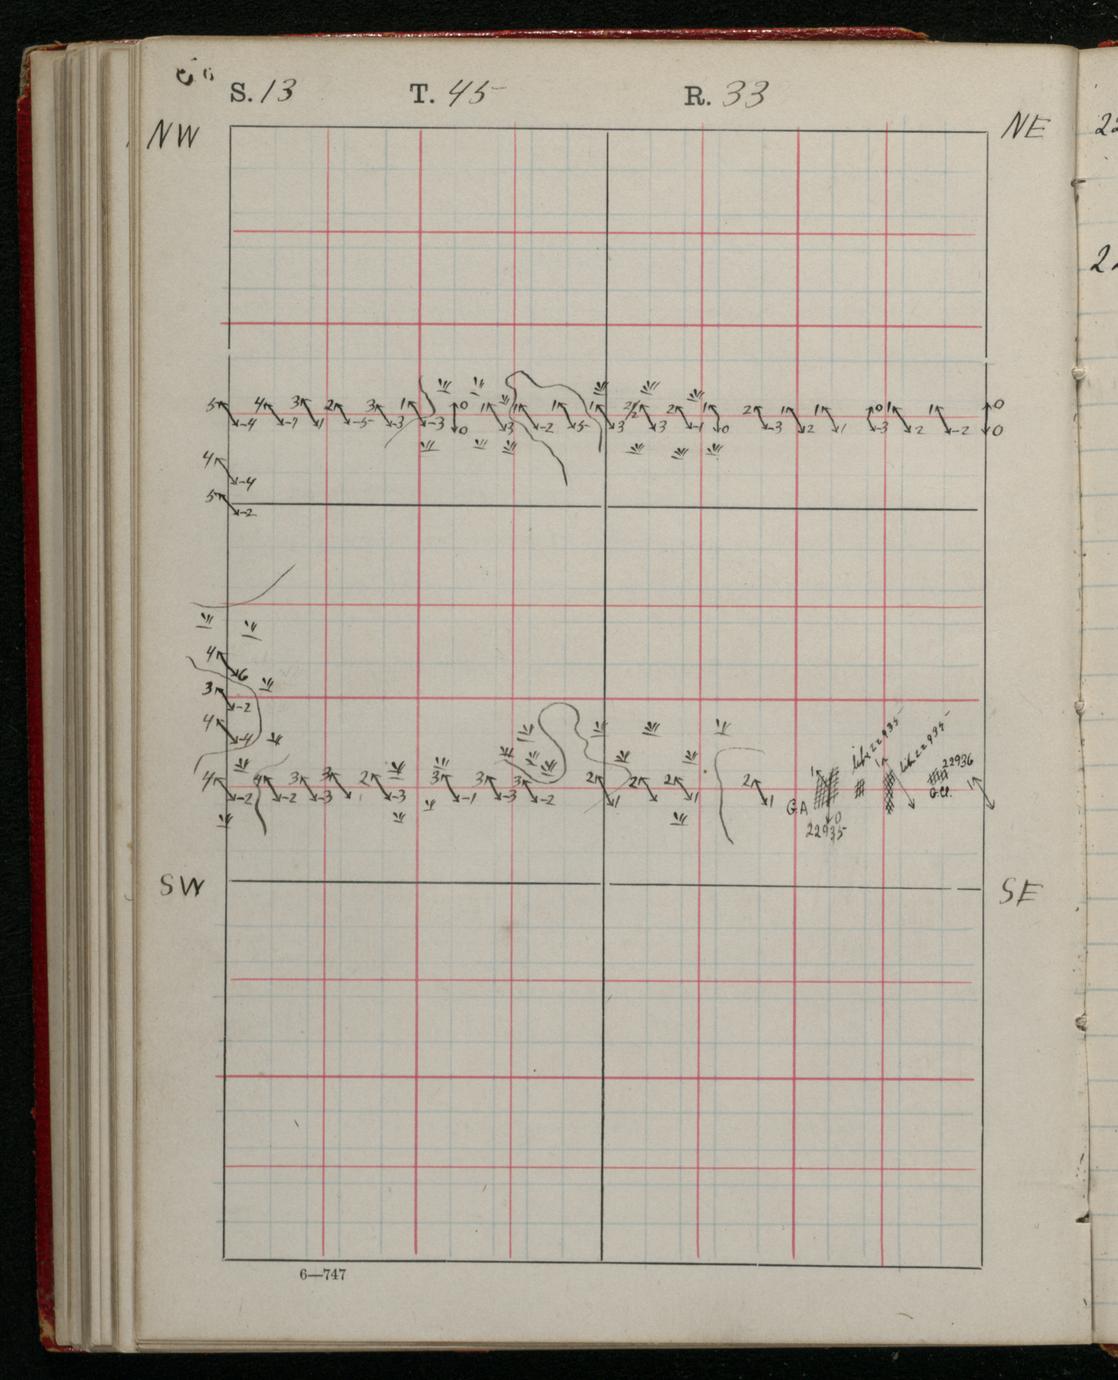 S. 13 T. 45 R. 33
NW NE
5 4 3 2 3 1 0 1 1 1 1 2 2 1 2 1 1 0 1 1 0
-4 -7 1 -5 -3 -3 0 3 -2 5 3 3 -1 0 -3 2 1 -3 2 -2 0
4
-4
5
-2
4
6
3
-2
4
-4
like 22935 like 22935
22936
4 4 3 3 2 3 3 3 2 2 2 2 1 1 1
-2 -2 -3 -3 -1 -3 -2 1 1 1 0
GA
22935
SW SE
6—747
22